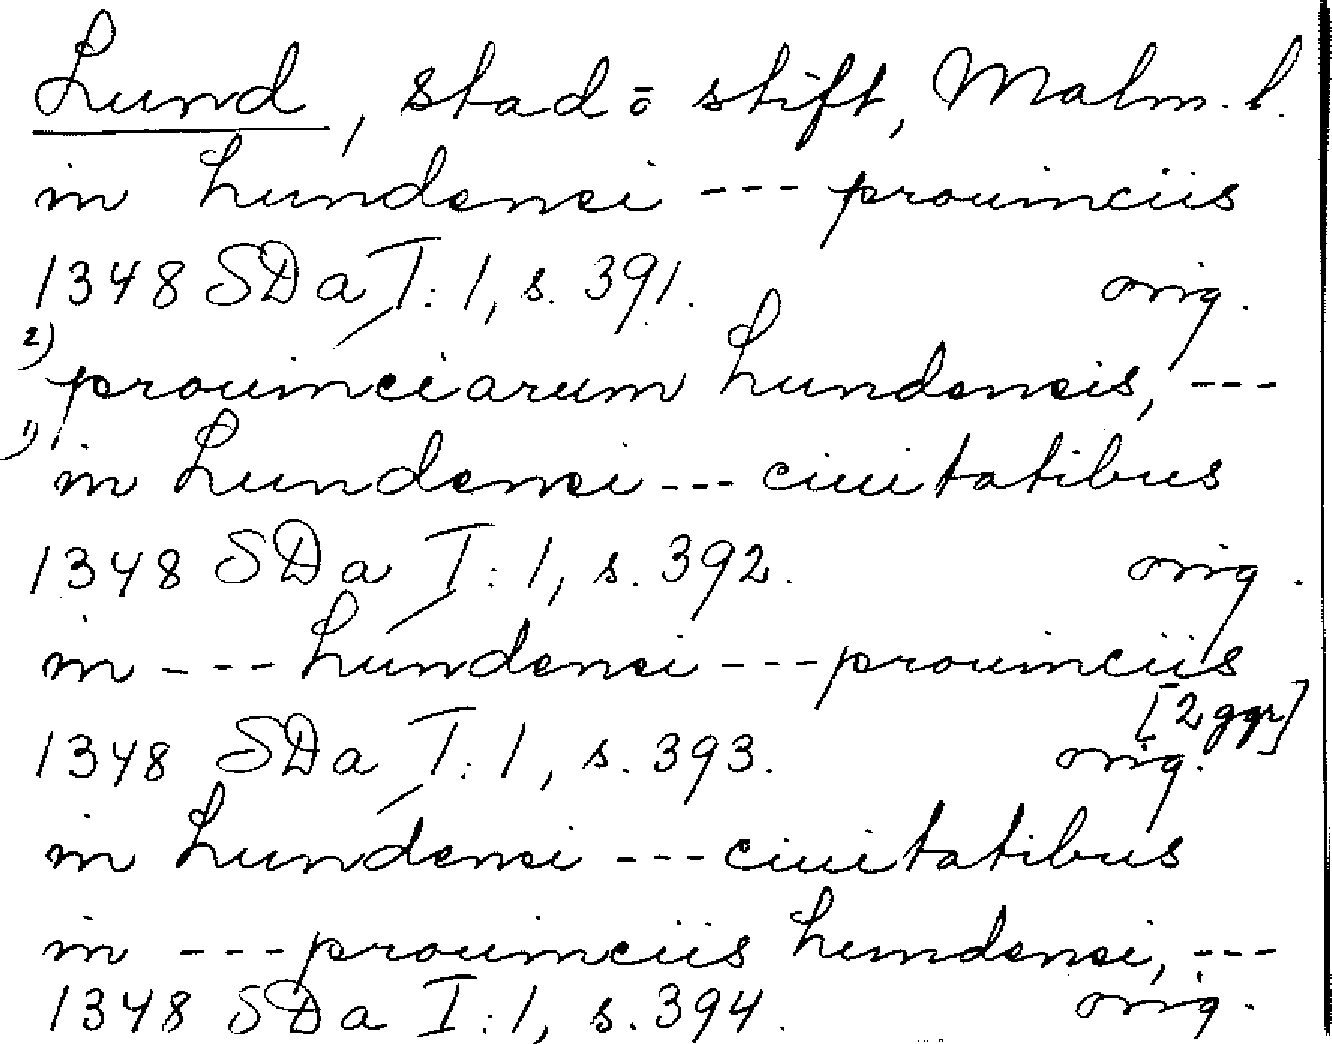 Lund, stad o stift, Malm. l.
in Lundensi --- prouinciis
1348 SDa I:1, s. 391. orig.
2) prouinciarum Lundensis, ---
1) in Lundensi --- ciuitatibus
1348 SDa I:1, s. 392. orig.
in --- Lundensi --- prouinciis
[2 ggr]
1348 SDa I:1, s. 393. orig.
in Lundensi --- ciuitatibus
in --- prouinciis Lundensi, ---
1348 SDa I:1, s. 394. orig.